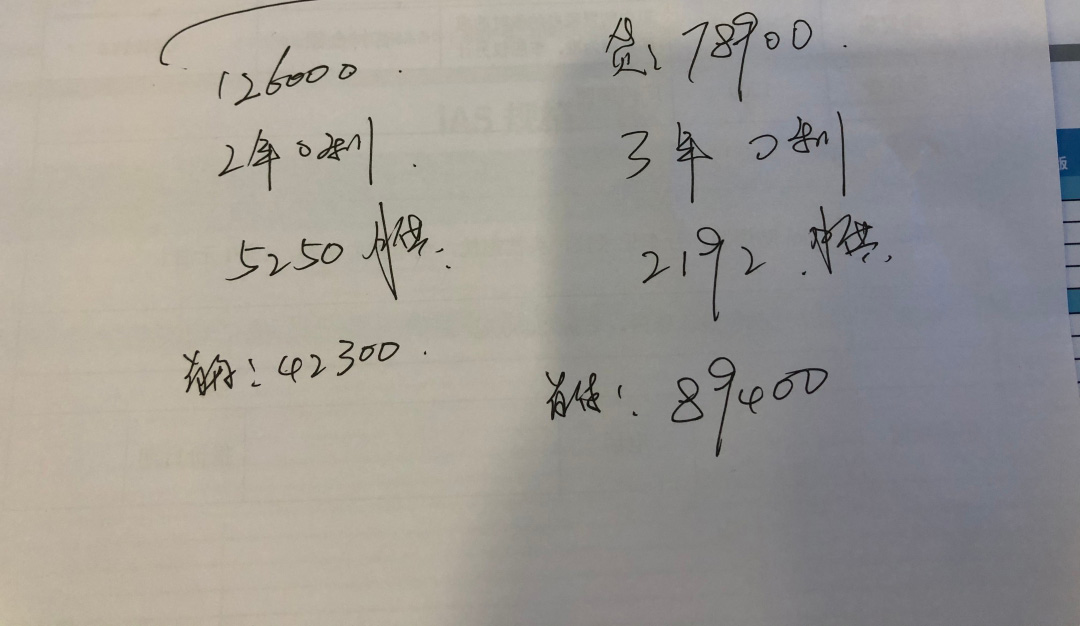 126000.
2年0利.
5250月供.
首付:42300.
贷:78900.
3年0利
2192.月供.
首付:89400